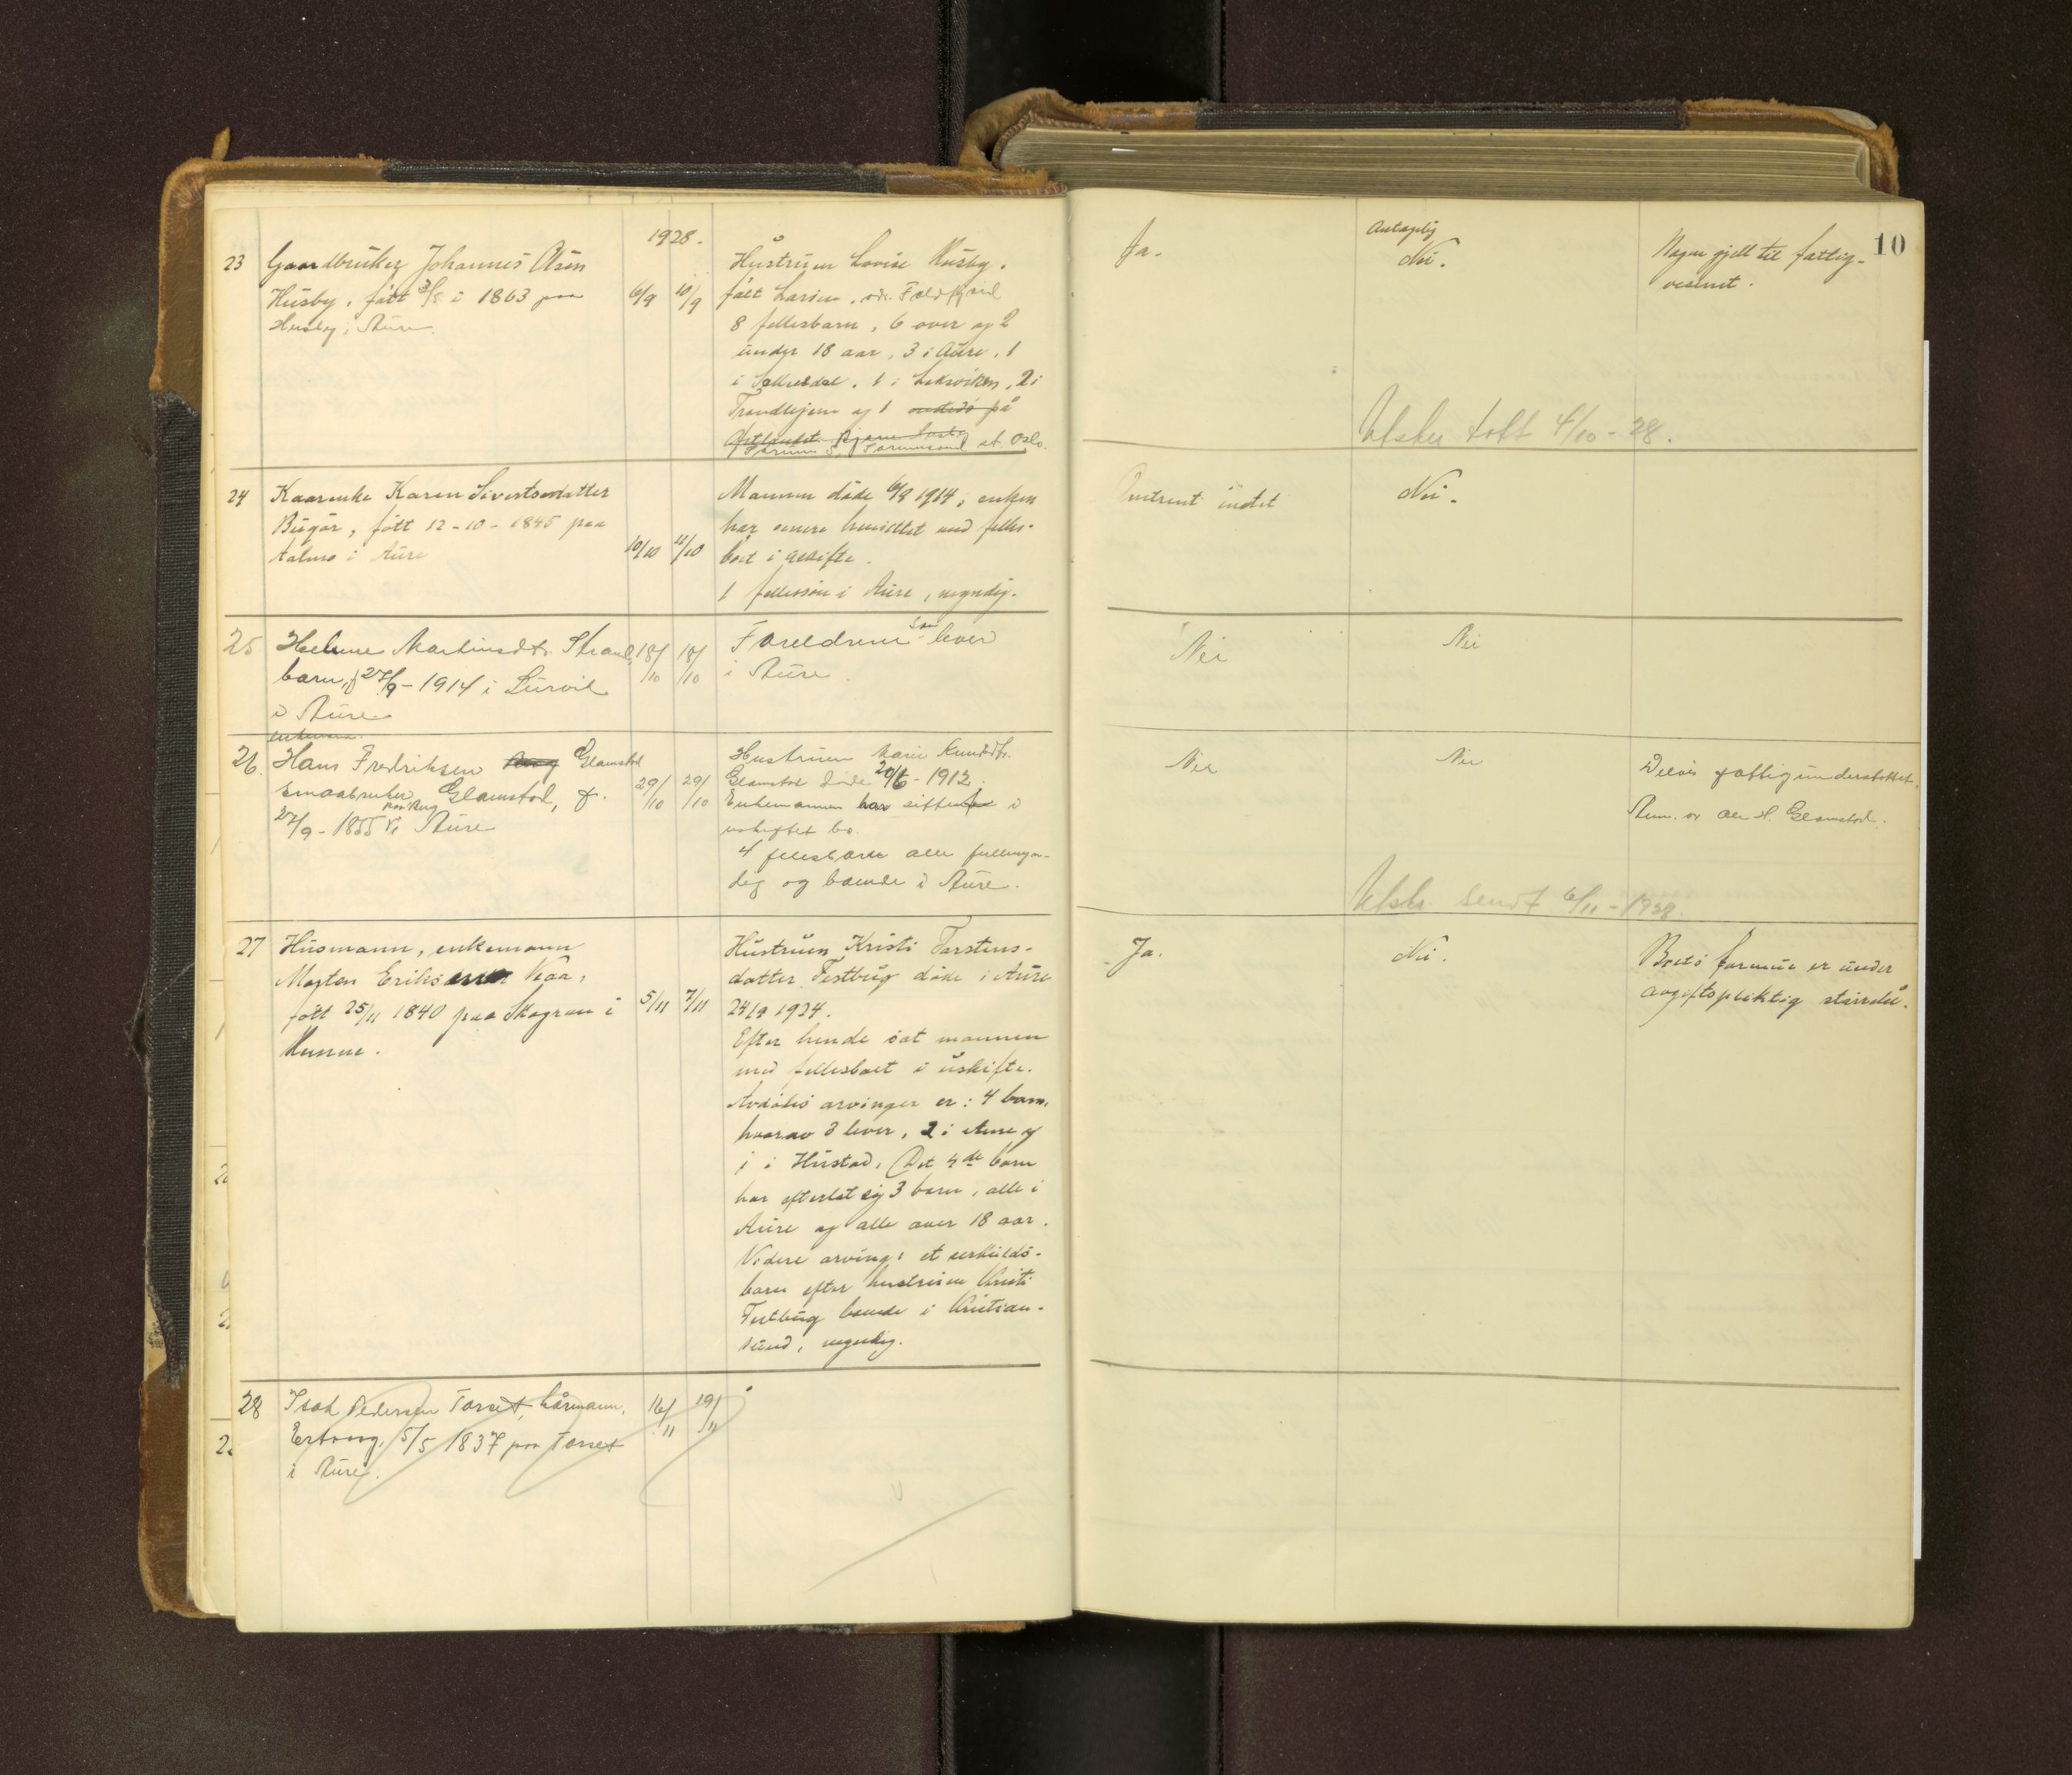 10
1928.
23 Gaardbruker Johannes Olsen
Husby, født i 1863 paa
Husby i Aure.
6/9 10/9
Hustruen Lovise Husby,
født Larsen,
8 fellesbarn, 6 over og 2
under 18 aar, 3 i Aure, 1
i 1 i Leksviken, 2 i
Trondhjem og 1 på
Oslo.
Ja.
Antagelig
Nei.
Nogen gjeld til fattig-
vesenet.
Utskr. tatt 4/10 - 28.
24 Kaarenke Karen Sivertsdatter
Bugår, født 12-10-1845 paa
i Aure
10/10 11/10
Mannen døde 6/9 1914; enken
har senere hensittet med felles-
boet i uskifte.
1 fellessøn i Aure, myndig.
Omtrent intet
Nei.
25 Martinsdtr. Strand,
barn, f 27/9 - 1914 i Lurvik
i Aure
18/10 18/10
Foreldrene som lever
i Aure.
Nei
Nei
enkemann.
26. Hans Fredriksen Glamstad
smaabruker, Glamstad, f.
27/9 - 1855 paa Berg i Aure
29/10 29/10
Hustruen Marie Knudsdtr.
Glamstad døde 20/6 - 1912.
Enkemannen har sittet i
uskiftet bo.
4 fellesbarn alle fullmyn-
dig og boende i Aure.
Nei
Nei
Delvis fattigunderstøttet.
Anm. av Ole H. Glamstad.
Utskr. sendt 6/11 - 1928.
27 Husmann, enkemann
Morten Eriksen Kaa,
født 25/11 1840 paa Skogran i
Hemne.
5/11 7/11
Hustruen Kristi Torstens-
datter Testbug døde i Aure
24/9 1924.
Efter hende sat mannen
med fellesboet i uskifte.
Avdødes arvinger er: 4 barn,
hvorav 3 lever, 2 i Aure og
1 i Hustad. Det 4de barn
har efterlat sig 3 barn, alle i
Aure og alle over 18 aar.
Videre arving: et særkulds-
barn efter hustruen Kristi
Testbug boende i Kristian-
sund, myndig.
Ja.
Nei.
Boets formue er under
avgiftspliktig størrelse.
28 Isak Pedersen Torset, kårmann,
Ertvaag, 5/5 1837 paa Torset
i Aure.
16/11 19/11